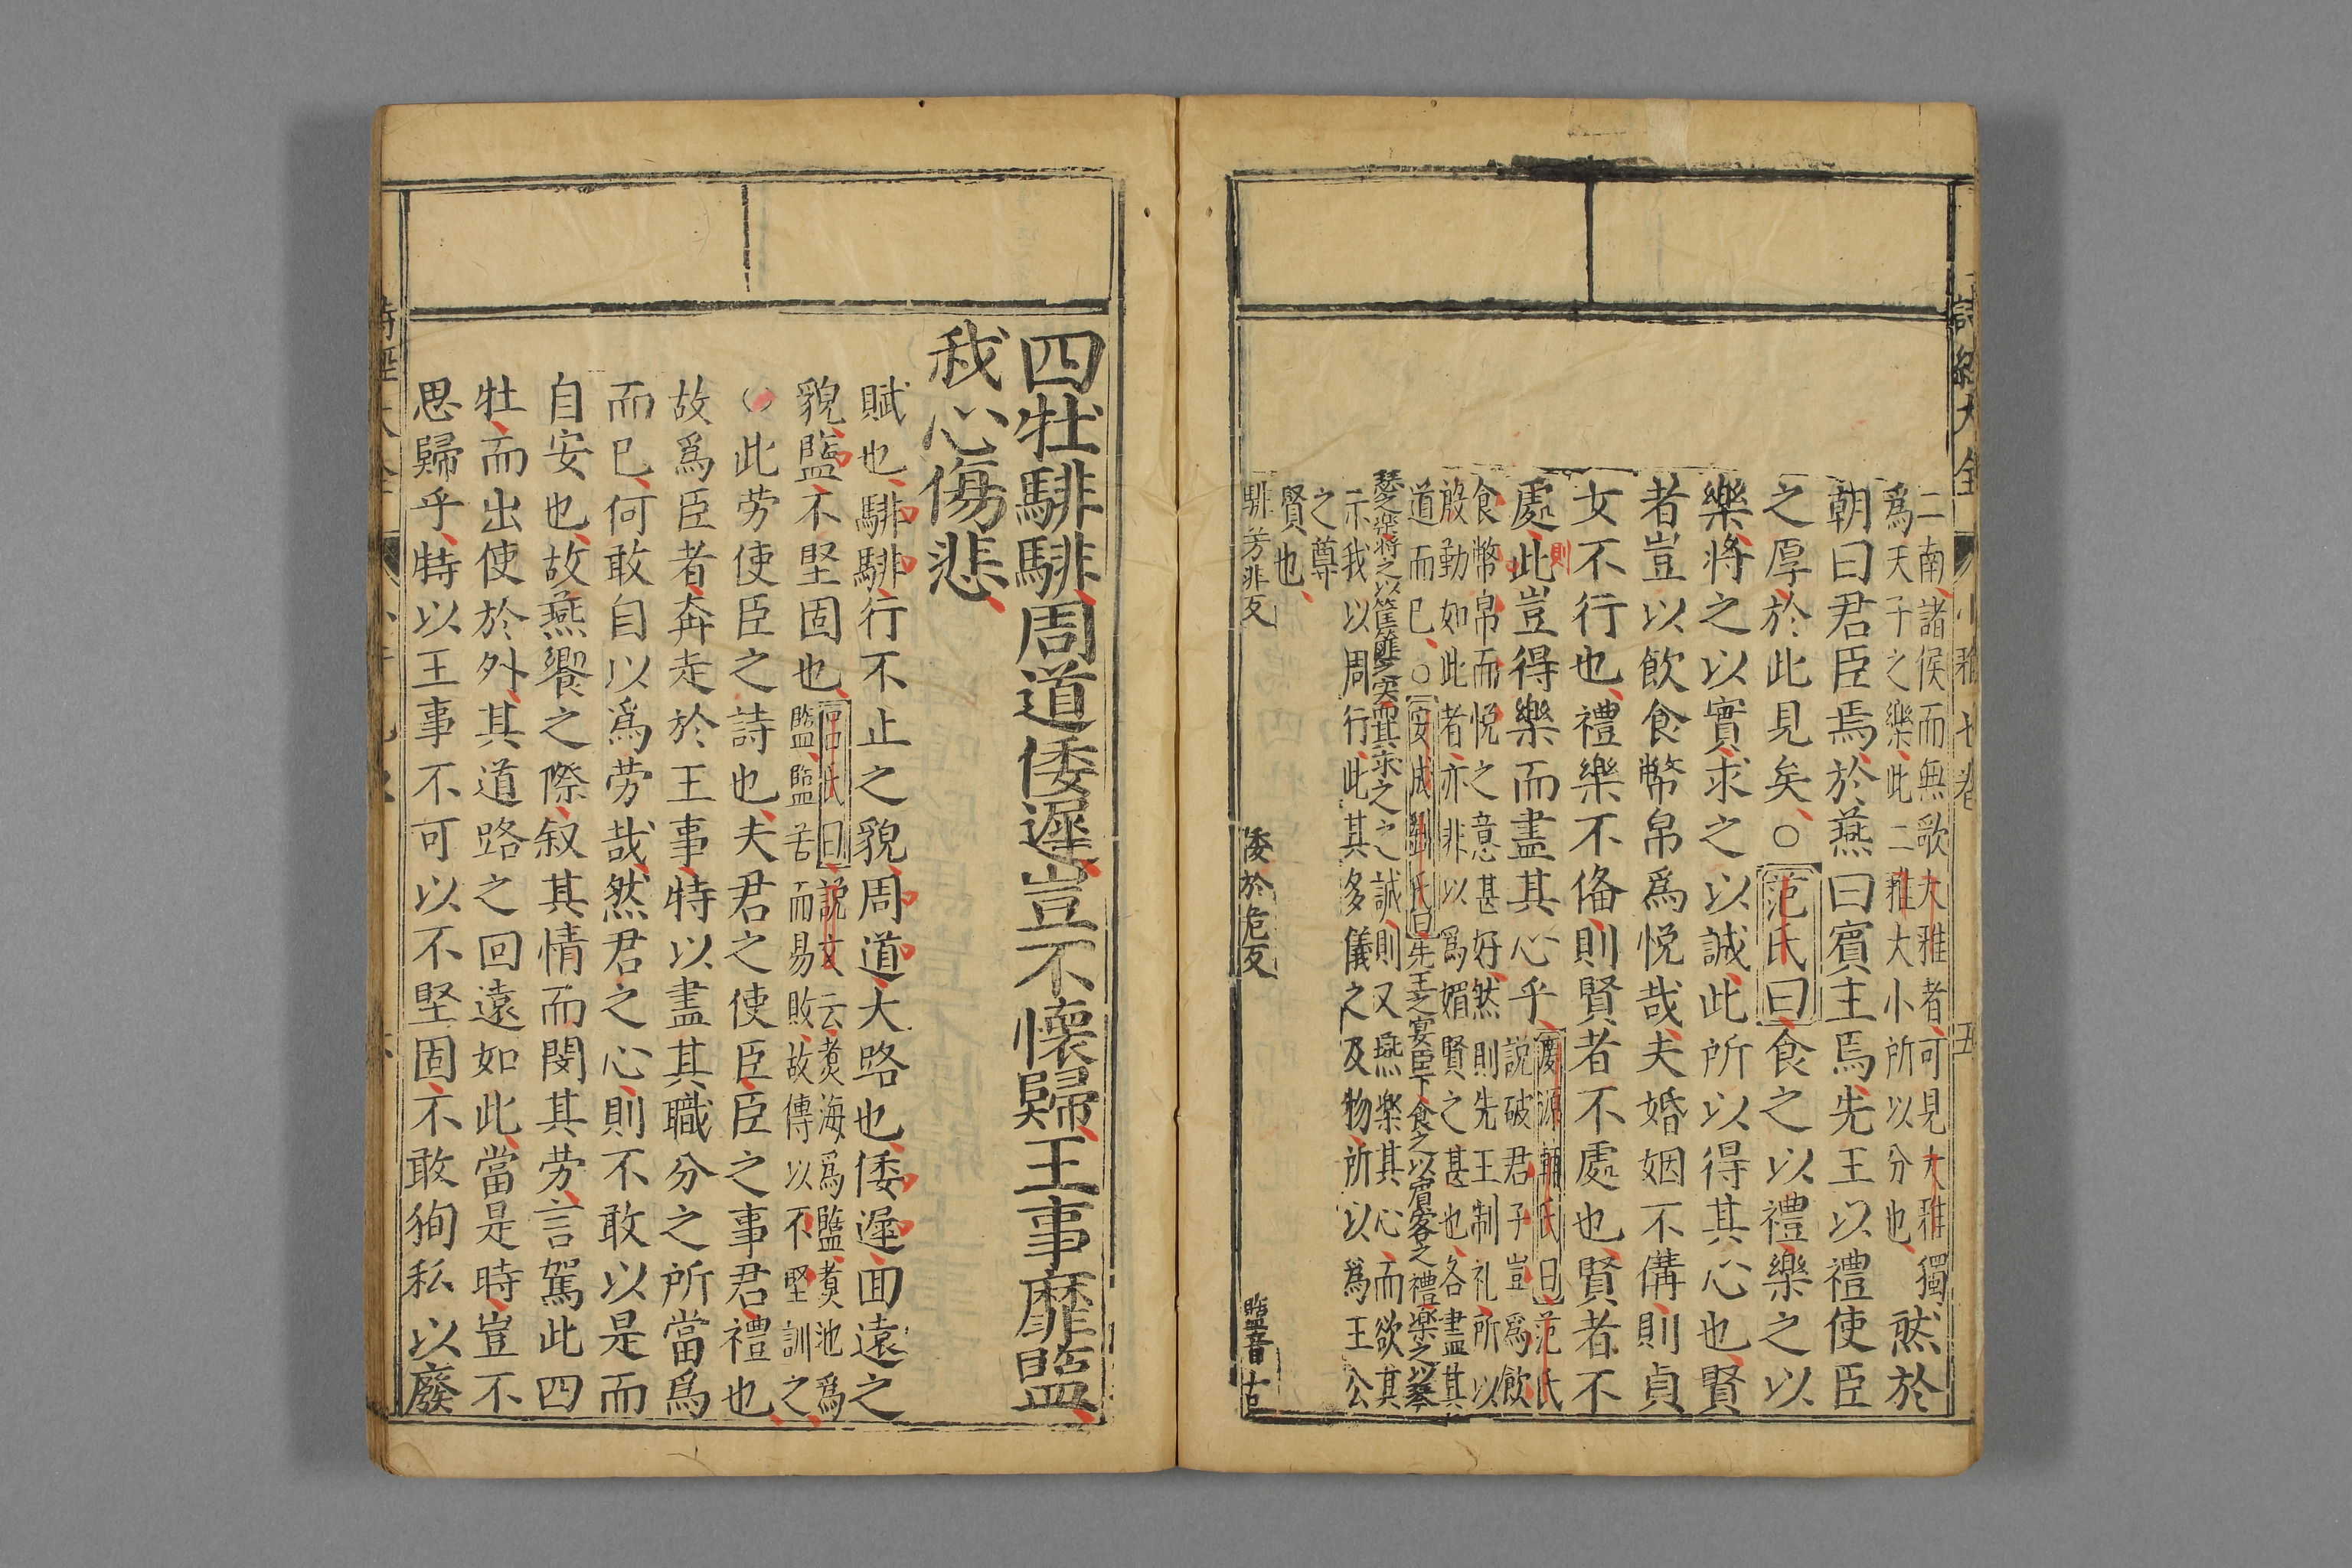 詩經大全 小雅七卷 五
二南諸侯而無歌大雅者可見大雅獨
爲天子之樂此二雅大小所以分也
然於
朝曰君臣焉於燕曰賓主焉先王以禮使臣
之厚於此見矣○范氏曰食之以禮樂之以
樂將之以實求之以誠此所以得其心也賢
者豈以飮食幣帛爲悅哉夫婚姻不備則貞
女不行也禮樂不俻則賢者不處也賢者不
處則此豈得樂而盡其心乎
慶源輔氏曰范氏
說破君子豈爲飮
食幣帛而悅之意甚好然則先王制礼所以
殷勤如此者亦非以爲媚賢之甚也各盡其
道而已○安成劉氏曰先王之宴臣下食之以賓客之禮樂之以琴
瑟之樂將之以筐篚之实而其求之之誠則又燕樂其心而欲其
示我以周行此其多儀之及物所以爲王公
之尊
賢也
騑芳非反 倭於危反 盬音古
四牡騑騑周道倭遲豈不懷歸王事靡盬
我心傷悲
賦也騑騑行不止之貌周道大路也倭遲囬遠之
貌盬不堅固也
呂氏曰說文云煑海爲鹽煑池爲
盬盬苦而易敗故傳以不堅訓之
○此劳使臣之詩也夫君之使臣臣之事君禮也
故爲臣者奔走於王事特以盡其職分之所當爲
而已何敢自以爲劳哉然君之心則不敢以是而
自安也故燕饗之際叙其情而閔其劳言駕此四
牡而出使於外其道路之回遠如此當是時豈不
思歸乎特以王事不可以不堅固不敢狥私以廢